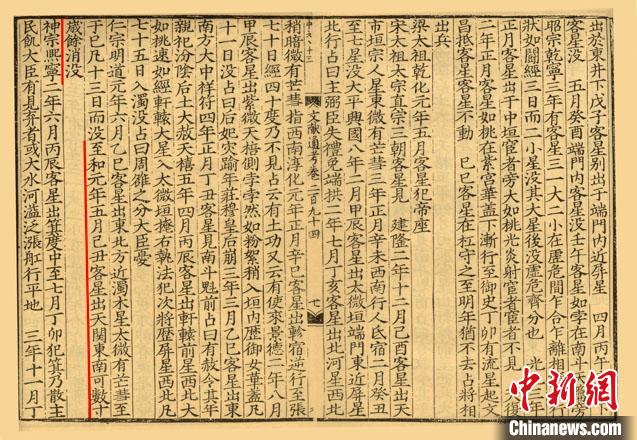 出於東井下戊子客星别出于端門内近屏星　四月丙午
客星没　五月癸酉端門内客星没壬午客星如孛在南斗天
昭宗乾寧三年有客星三一大二小在虚危間乍合乍離相
狀如鬭經三日而二小星没其大星後没虚危齊分也　光
正月客星出于中垣宦者旁大如桃光炎射宦者宦者不見
二年正月客星如桃在紫宫華蓋下漸行至御史丁卯有流星起文
昌抵客星客星不動　己巳客星在杠守之至明年猶不去占將相
出兵
梁太祖乾化元年五月客星犯帝座
宋太祖太宗真宗三朝客星見　建隆二年十二月己酉客星出天
市垣宗人星東微有芒彗三年正月辛未西南行入氐宿二月癸丑
至七星没太平興國八年二月甲辰客星出太微垣端門東近屏星
北行占曰主弼臣失禮免端拱二年七月丁亥客星出北河星西北
文獻通考卷二百九十四　七
稍暗微有芒彗指西南淳化元年正月辛巳客星出軫宿逆行至張
七十日經四十度乃不見占云有土功又云有使來景德二年八月
甲辰客星出紫微天棓側孛孛然如粉絮稍入垣内歷御女華蓋凡
十一日没占曰后妃灾踰年莊穆皇后崩三年三月乙巳客星出東
南方大中祥符四年正月丁丑客星見南斗魁前占曰有赦令其年
親祀汾陰后土大赦天禧五年四月丙辰客星出軒轅前星西北大
如桃速行經軒轅大星入太微垣掩右執法犯次將歷屏星西北凡
七十五日入濁没占曰周雒之分大臣憂
仁宗明道元年六月乙巳客星出東北方近濁木星太微有芒彗至
丁巳凡十三日而没至和元年五月己丑客星出天關東南可數寸
歲餘消没
神宗熙寧二年六月丙辰客星出箕度中至七月丁卯犯箕乃散主
民飢大臣有見弃者或大水河溢泛漲舡行平地　三年十一月丁
中新網
WWW.CHINANEWS.COM